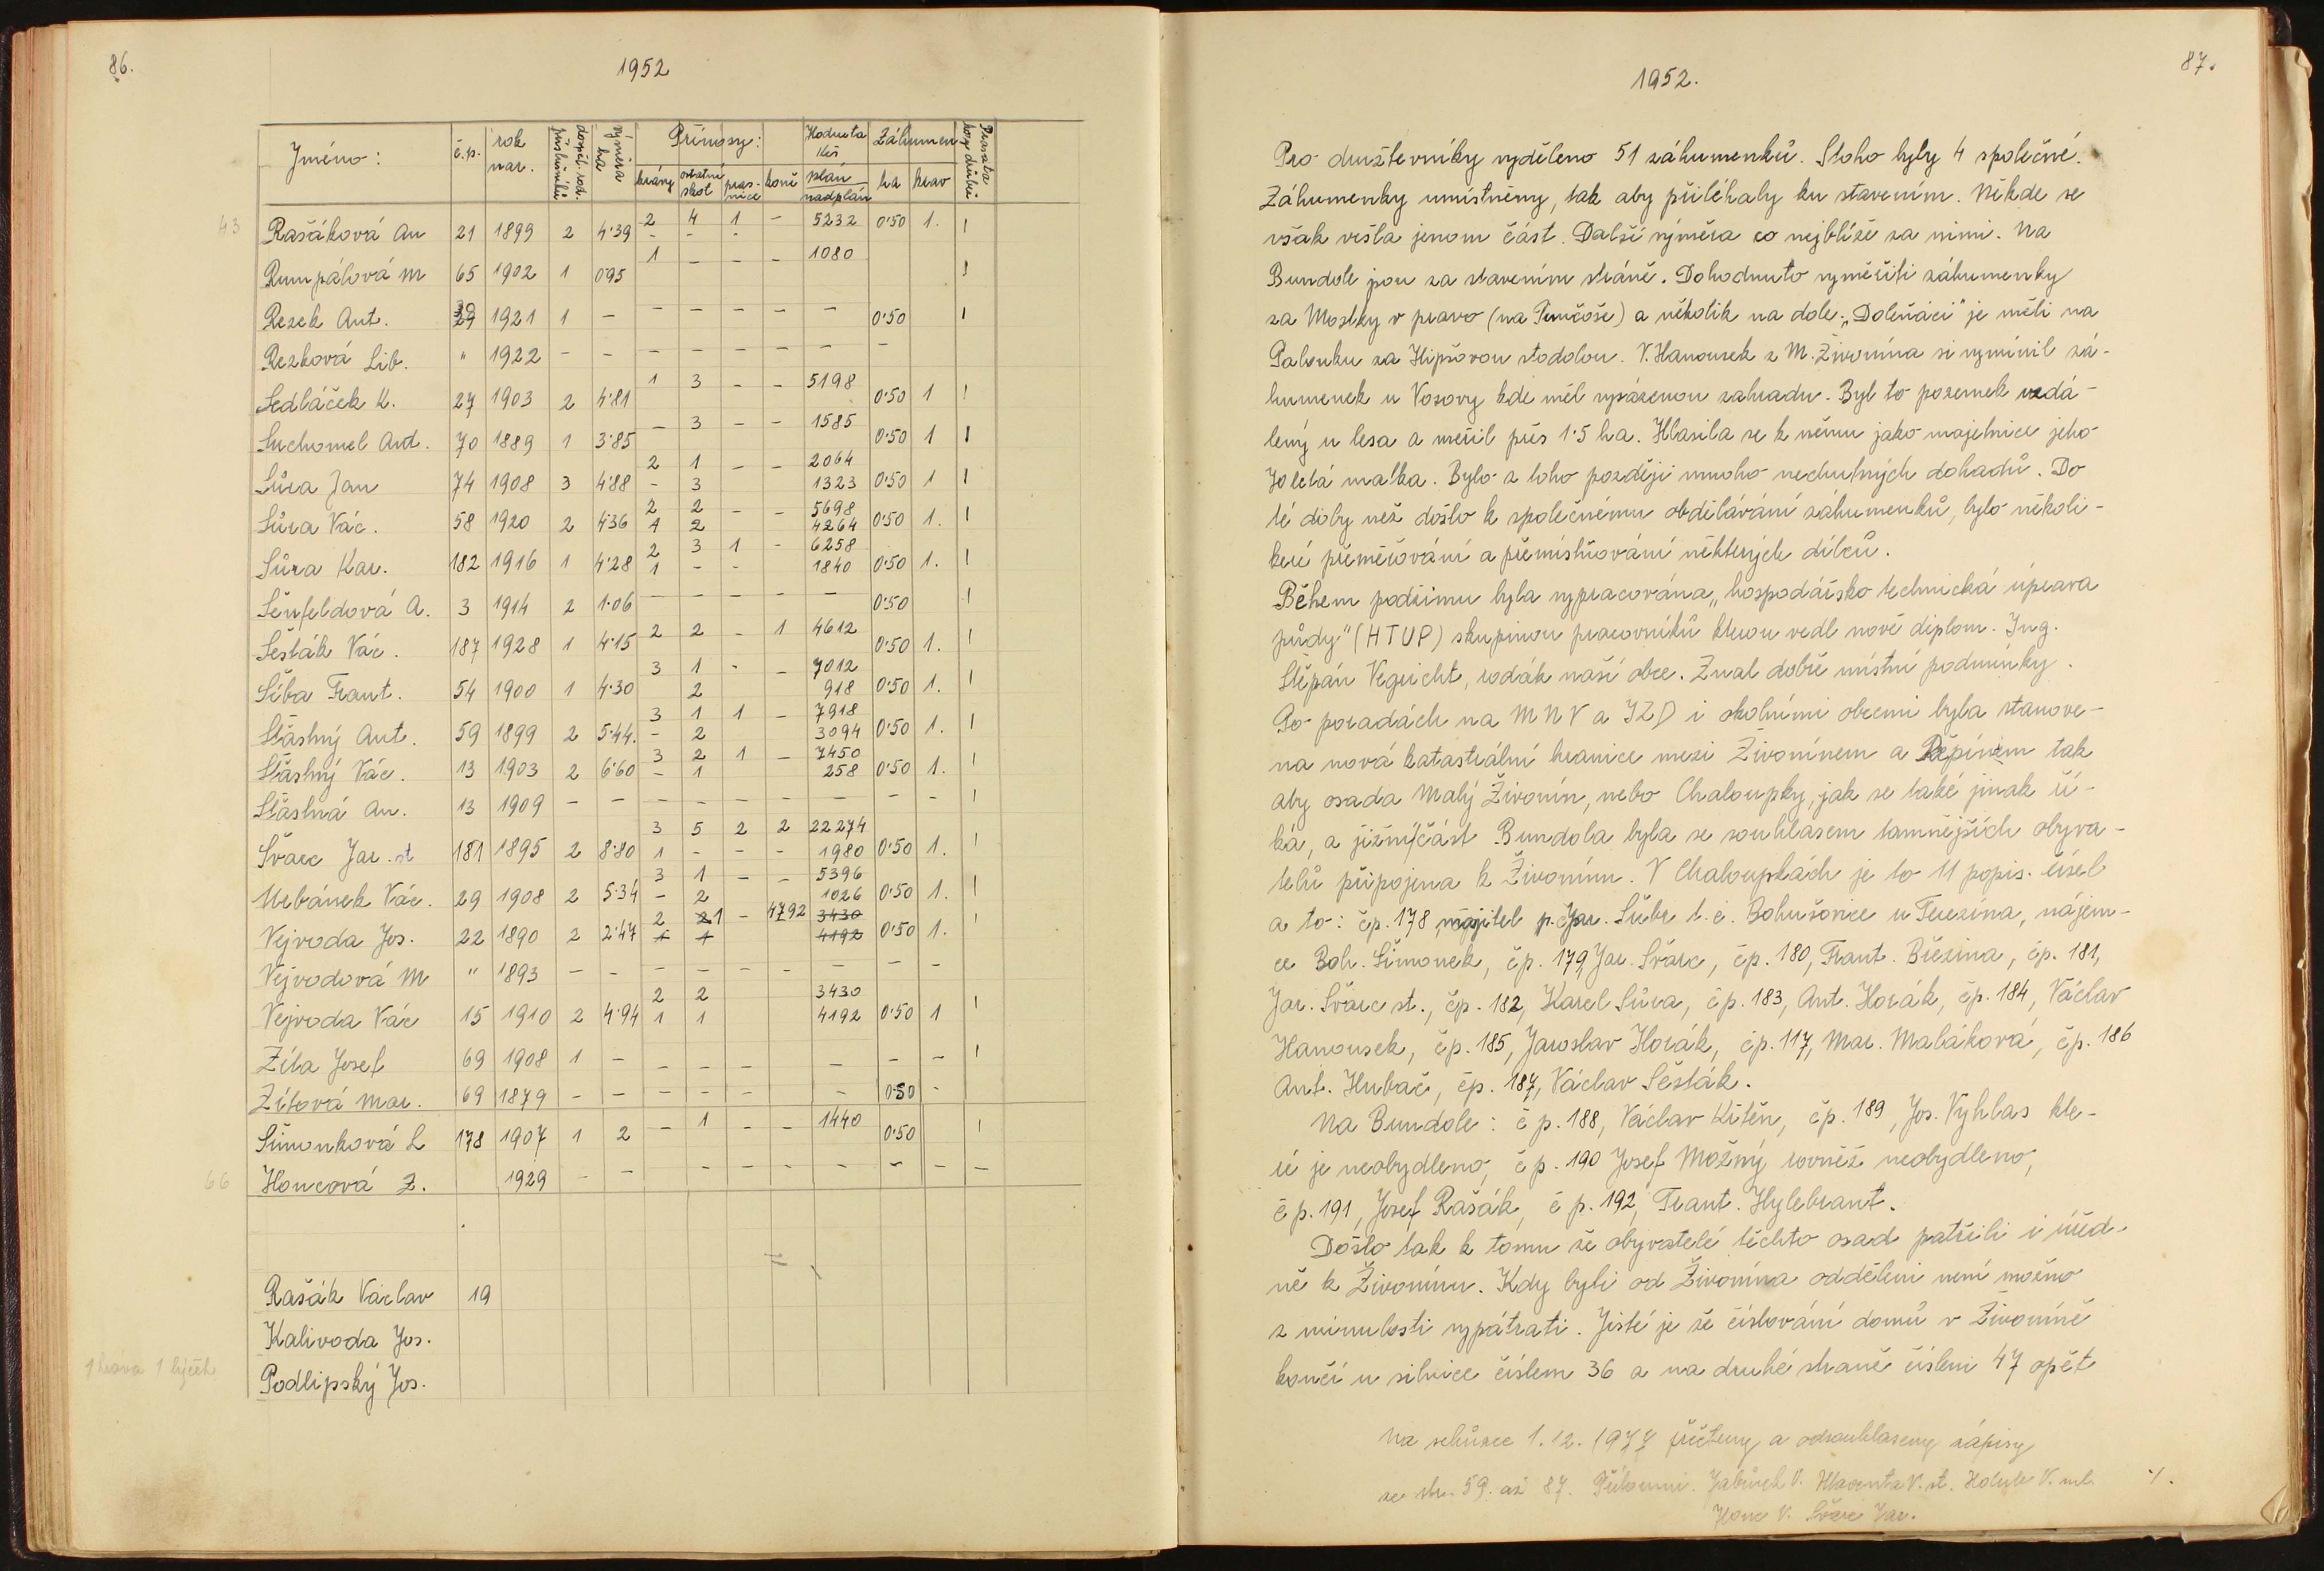 86.
1952
Jméno: č.p. rok nar. dospěl. rod. příslušníků výměra ha Přínosy: Hodnota Kčs Záhumen Prasata kozy drůbež
krávy ostatní skot pras-nice koně plán nadplán ha krav
43 Rašáková An 21 1899 2 4·39 2 4 1 - 5232 0·50 1. !
- - -
Rumpálová M 65 1902 1 0·95 1 - - - 1080 !
Rezek Ant. 39 1921 1 - - - - - - 0·50 !
Rezková Lib. " 1922 - - - - - - - -
Sedláček K. 27 1903 2 4·81 1 3 - - 5198 0·50 1 !
Suchomel Ant. 70 1889 1 3·85 - 3 - - 1585 0·50 1 !
Sůra Jan 74 1908 3 4·88 2 1 - - 2064 0·50 1 !
- 3 1323
Sůra Vác. 58 1920 2 4·36 2 2 - - 5698 0·50 1. !
1 2 4264
Sůra Kar. 182 1916 1 4·28 2 3 1 - 6258 0·50 1. !
1 - - 1840
Šénfeldová A. 3 1914 2 1·06 - - - - - 0·50 !
Šesták Vác. 187 1928 1 4·15 2 2 - 1 4612 0·50 1. !
Šiba Frant. 54 1900 1 4·30 3 1 - - 7012 0·50 1. !
2 918
Šťastný Ant. 59 1899 2 5·44. 3 1 1 - 7918 0·50 1. !
- 2 3094
Šťastný Vác. 13 1903 2 6·60 3 2 1 - 7450 0·50 1. !
- 1 258
Šťastná An. 13 1909 - - - - - - - - - !
Švarc Jar. st 181 1895 2 8·80 3 5 2 2 22274 0·50 1. !
1 - - - 1980
Urbánek Vác. 29 1908 2 5·34 3 1 - - 5396 0·50 1. !
- 2 1026
Vejvoda Jos. 22 1890 2 2·47 2 2 1 - 4792 3430 0·50 1. !
1 1 4192
Vejvodová M " 1893 - - - - - - - - -
Vejvoda Vác 15 1910 2 4·94 2 2 3430 0·50 1 !
1 1 4192
Zíta Josef 69 1908 1 - - - - - - - !
Zítová Mar. 69 1879 - - - - - - 0·50 -
Šimonková L 178 1907 1 2 - 1 - - 1440 0·50 !
66 Honcová Z. 1929 - - - - - - - - - -
Rašák Václav 19
Kalivoda Jos.
1 kráva 1 býček Podlipský Jos.
87.
1952.
Pro družstevníky vyděleno 51 záhumenků. Z toho byly 4 společné.
Záhumenky umístněny, tak aby přiléhaly ku stavením. Někde se
však vešla jenom část. Další výměra co nejblíže za nimi. Na
Bundole jsou za stavením stráně. Dohodnuto vyměřiti záhumenky
za Mostky v pravo (na) a několik na dole. „Doleňáci" je měli na
Palouku za Hipšovou stodolou. V. Hanousek z M. Živonína si vymínil zá-
humenek u Vosovy kde měl vysázenou zahradu. Byl to pozemek vzdá-
lený u lesa a měřil přes 1·5 ha. Hlásila se k němu jako majetnice jeho
70 letá matka. Bylo z toho později mnoho nechutných dohadů. Do
té doby než došlo k společnému obdělávání záhumenků, bylo několi-
keré přeměřování a přemísťování některých dílců.
Během podzimu byla vypracována „hospodářsko technická úprava
půdy" (HTUP) skupinou pracovníků kterou vedl nově diplom. Ing.
Štěpán Vegricht, rodák naší obce. Znal dobře místní podmínky.
Po poradách na MNV a JZD i okolními obcemi byla stanove-
na nová katastrální hranice mezi Živonínem a Řepínem tak
aby osada Malý Živonín, nebo Chaloupky, jak se také jinak ří-
ká, a jižní část Bundola byla se souhlasem tamnějších obyva-
telů připojena k Živonínu. V Chaloupkách je to 11 popis. čísel
a to: čp. 178 majitel p. Jar. Šubr t.č. Bohušovice u Terezína, nájem-
ce Boh. Šimonek, čp. 179, Jar. Švarc, čp. 180, Frant. Březina, čp. 181,
Jar. Švarc st., čp. 182, Karel Sůra, čp. 183, Ant. Horák, čp. 184, Václav
Hanousek, čp. 185, Jaroslav Horák, čp. 117, Mar. Maláková, čp. 186
Ant. Hubač, čp. 187, Václav Šesták.
Na Bundole: č p. 188, Václav Kštěn, čp. 189, Jos. Vyhlas kte-
ré je neobydleno, č p. 190 Josef Možný rovněž neobydleno,
č p. 191, Josef Rašák, č p. 192, Frant. Hylebrant.
Došlo tak k tomu že obyvatelé těchto osad patřili i úřed-
ně k Živonínu. Kdy byli od Živonína odděleni není možno
z minulosti vypátrati. Jisté je že číslování domů v Živoníně
končí u silnice číslem 36 a na druhé straně číslem 47 opět
Na schůzce 1.12.1977 přečteny a odsouhlaseny zápisy
ze str. 59. až 87. Přítomni. Jabůrek V. Hlavenka V. st. Holub V. ml. ./.
Honc V. Švarc Jar.